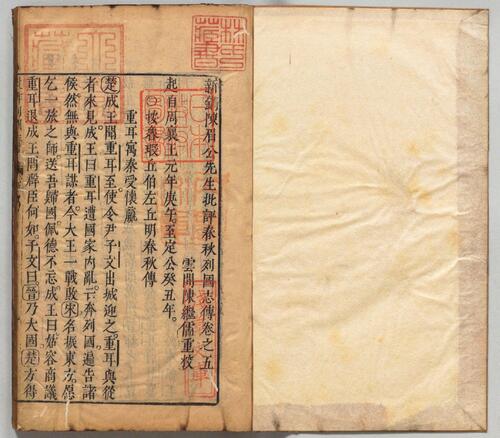 新鐫陳眉公先生批評春秋列國志傳卷之五
雲間陳繼儒重校
起自周襄王元年庚午至定公癸丑年。
按春秋瑕丘伯左丘明春秋傳
重耳寓秦受懷嬴
楚成王聞重耳至使令尹子文出城迎之。重耳與從
者來見成王曰重耳遭國家內亂。奔列國遍告諸
侯然無與重耳謀者。今大王一戰敗宋名振東方愿
乞一旅之師送吾歸國佩德不忘。成王曰姑容商議
重耳退成王問群臣何如。子文曰晉乃大國楚方得
林氏藏書